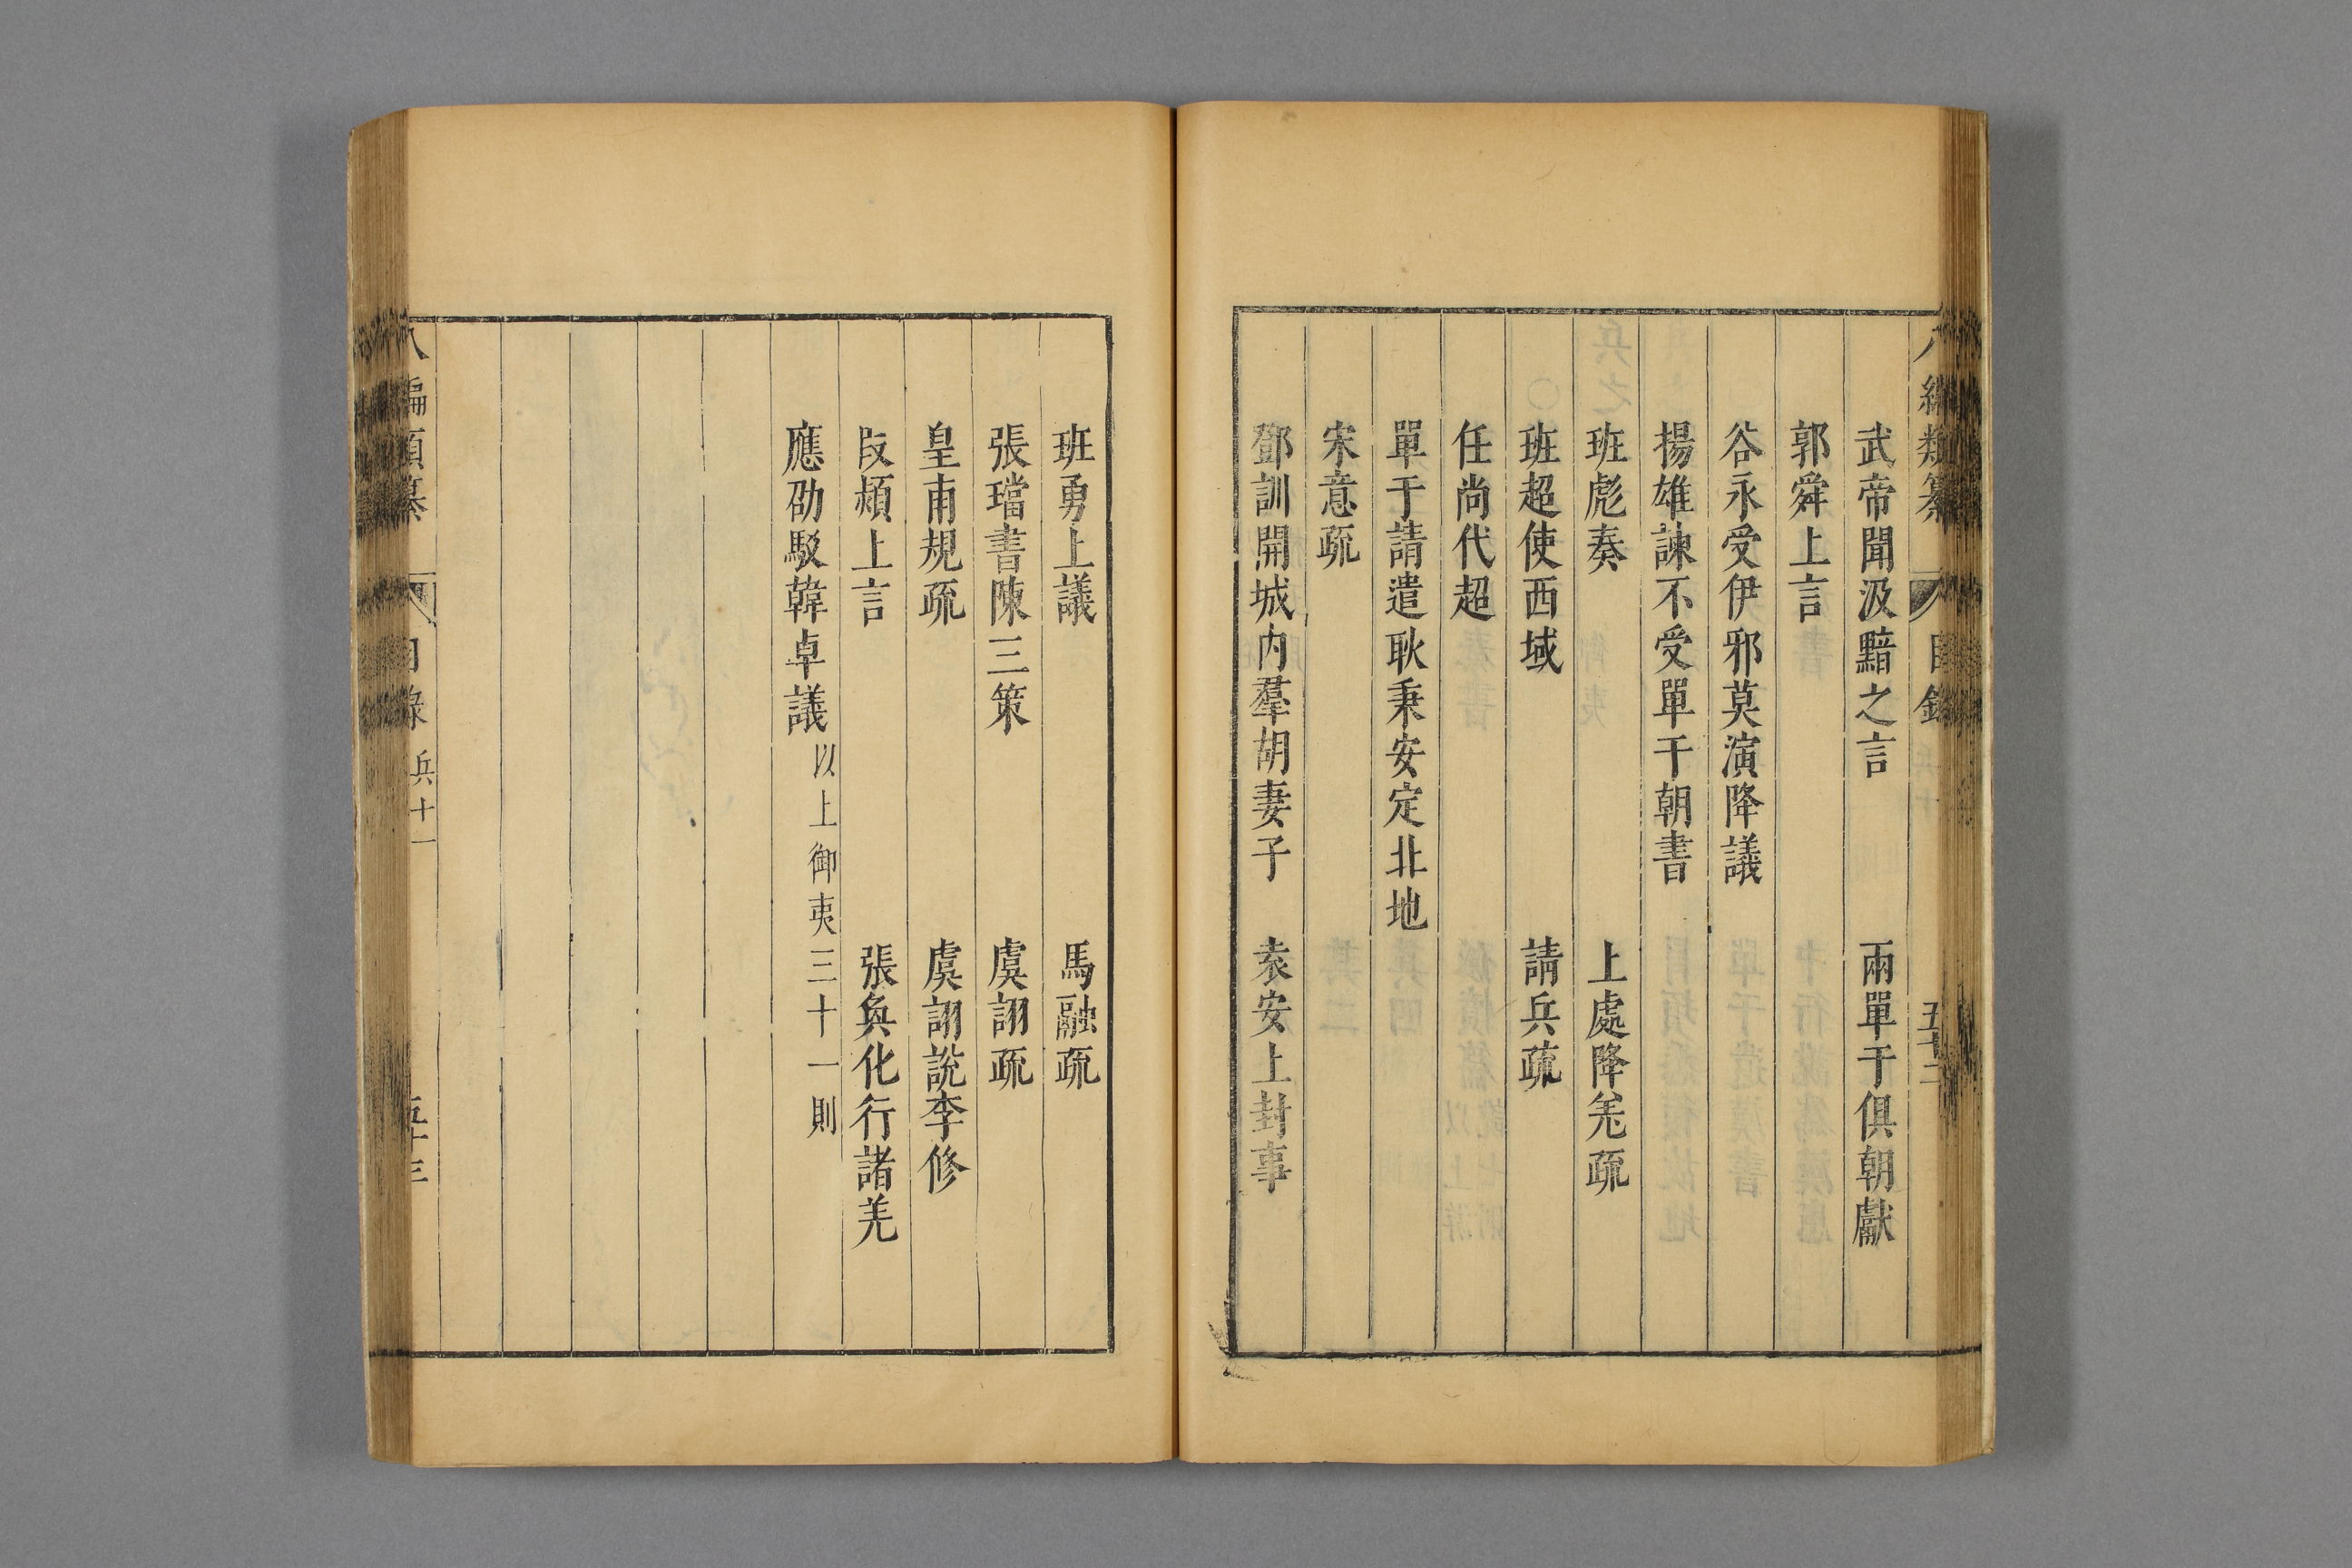 編類纂 目錄 五十二
武帝聞汲黯之言 兩單于俱朝獻
郭舜上言
谷永受伊邪莫演降議
揚雄諫不受單于朝書
班彪奏 上處降羌疏
班超使西域 請兵疏
任尚代超
單于請遣耿秉安定北地
宋意疏
鄧訓開城內羣胡妻子 袁安上封事
班勇上議 馬融疏
張璫書陳三策 虞詡疏
皇甫規疏 虞詡說李修
段熲上言 張奐化行諸羌
應劭駁韓卓議 以上御夷三十一則
八編類纂 目錄 兵十一